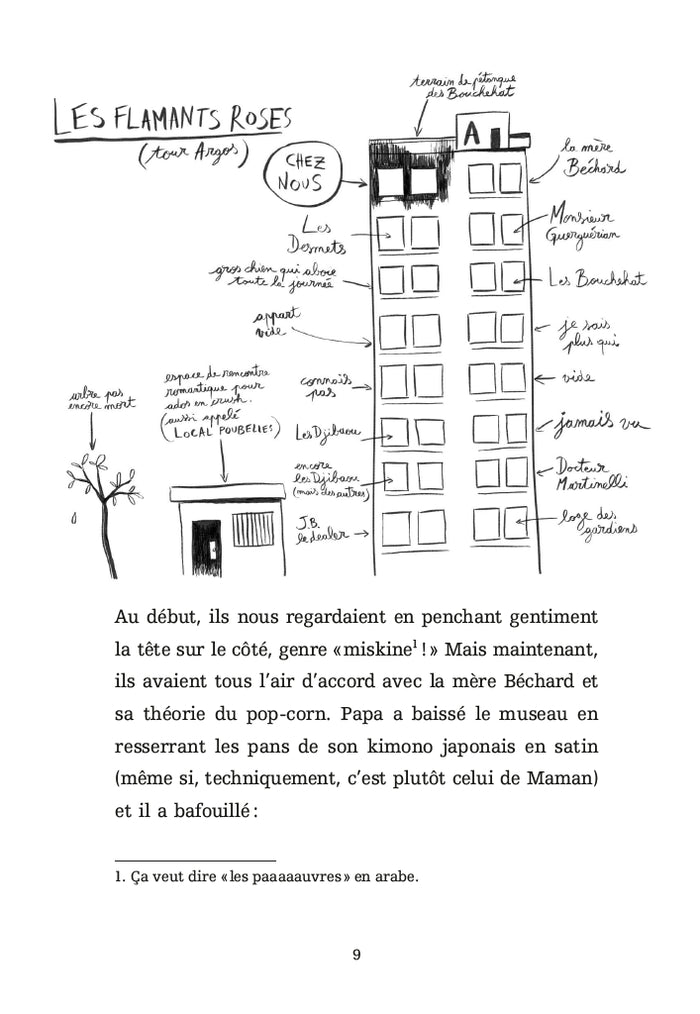 LES FLAMANTS ROSES
(tour Argos)
terrain de pétanque
des Bouchehat
A
CHEZ
NOUS
la mère
Béchard
Les
Desmets
Monsieur
Guerguérian
gros chien qui aboie
toute la journée
Les Bouchehat
appart
vide
je sais
plus qui
connais
pas
vide
arbre pas
encore mort
espace de rencontre
romantique pour
ados en crush.
(aussi appelé
LOCAL POUBELLES)
Les Djibaou
jamais vu
encore
les Djibaou
(mais des autres)
Docteur
Martinelli
J.B.
le dealer
loge des
gardiens
Au début, ils nous regardaient en penchant gentiment
la tête sur le côté, genre « miskine¹ ! » Mais maintenant,
ils avaient tous l’air d’accord avec la mère Béchard et
sa théorie du pop-corn. Papa a baissé le museau en
resserrant les pans de son kimono japonais en satin
(même si, techniquement, c’est plutôt celui de Maman)
et il a bafouillé :
1. Ça veut dire « les paaaaauvres » en arabe.
9